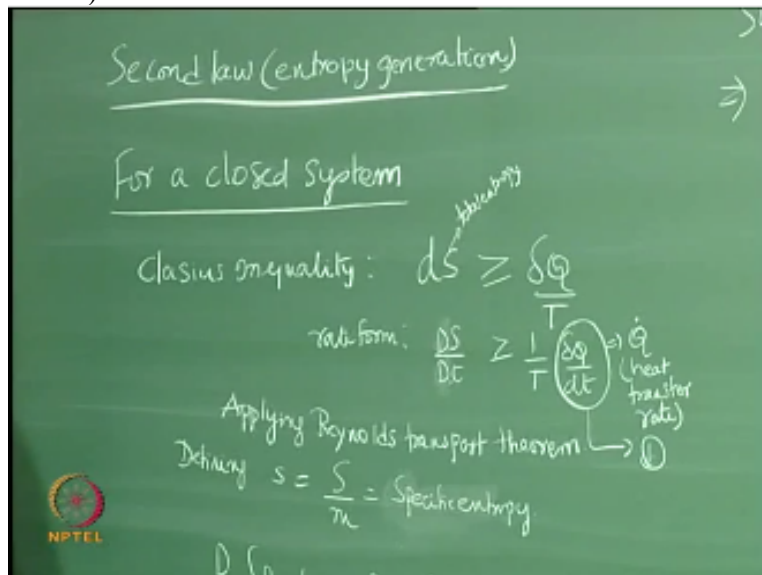 Second law (entropy generation)
⇒)
For a closed system
total entropy
Clasius inequality: dS ≥ δQ/T
rate form: DS/Dt ≥ 1/T δQ/dt ⇒ Q̇
(heat transfer rate)
Applying Reynolds transport theorem → ①
Defining s = S/m = Specific entropy
NPTEL